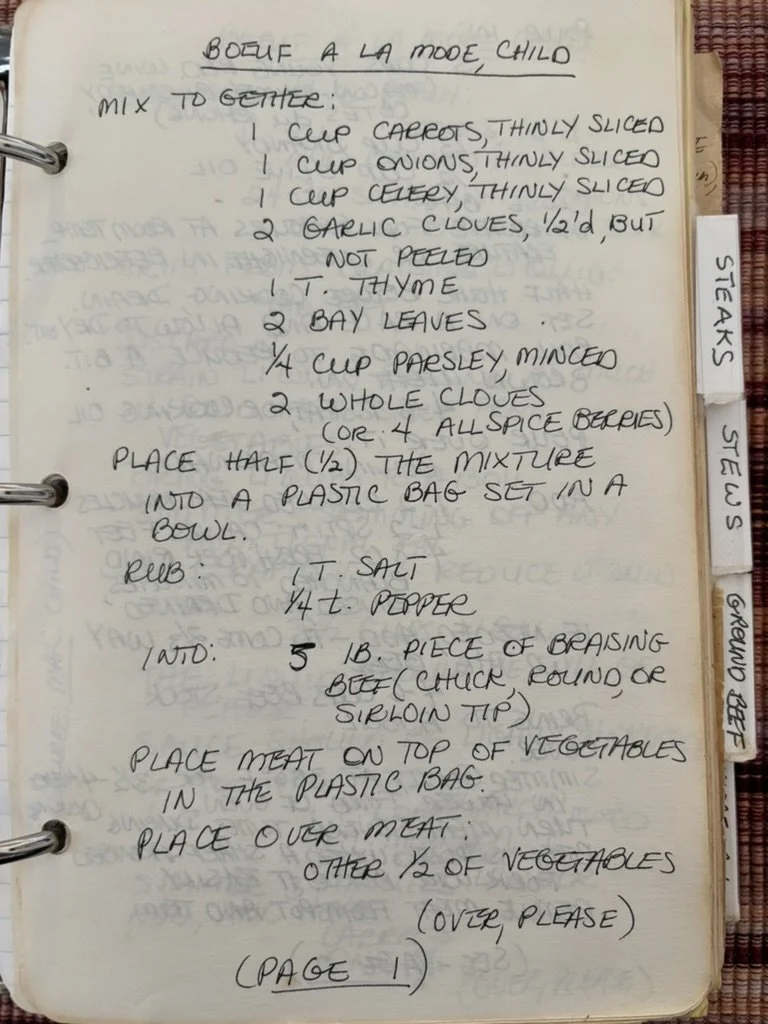 BOEUF A LA MODE, CHILD
MIX TO GETHER:
1 CUP CARROTS, THINLY SLICED
1 CUP ONIONS, THINLY SLICED
1 CUP CELERY, THINLY SLICED
2 GARLIC CLOVES, 1/2'd, BUT
NOT PEELED
1 T. THYME
2 BAY LEAVES
1/4 CUP PARSLEY, MINCED
2 WHOLE CLOVES
(OR 4 ALLSPICE BERRIES)
PLACE HALF (1/2) THE MIXTURE
INTO A PLASTIC BAG SET IN A
BOWL.
RUB: 1 T. SALT
1/4 t. PEPPER
INTO: 5 lB. PIECE OF BRAISING
BEEF (CHUCK, ROUND, OR
SIRLOIN TIP)
PLACE MEAT ON TOP OF VEGETABLES
IN THE PLASTIC BAG.
PLACE OVER MEAT:
OTHER 1/2 OF VEGETABLES
(OVER, PLEASE)
(PAGE 1)
STEAKS
STEWS
GROUND BEEF